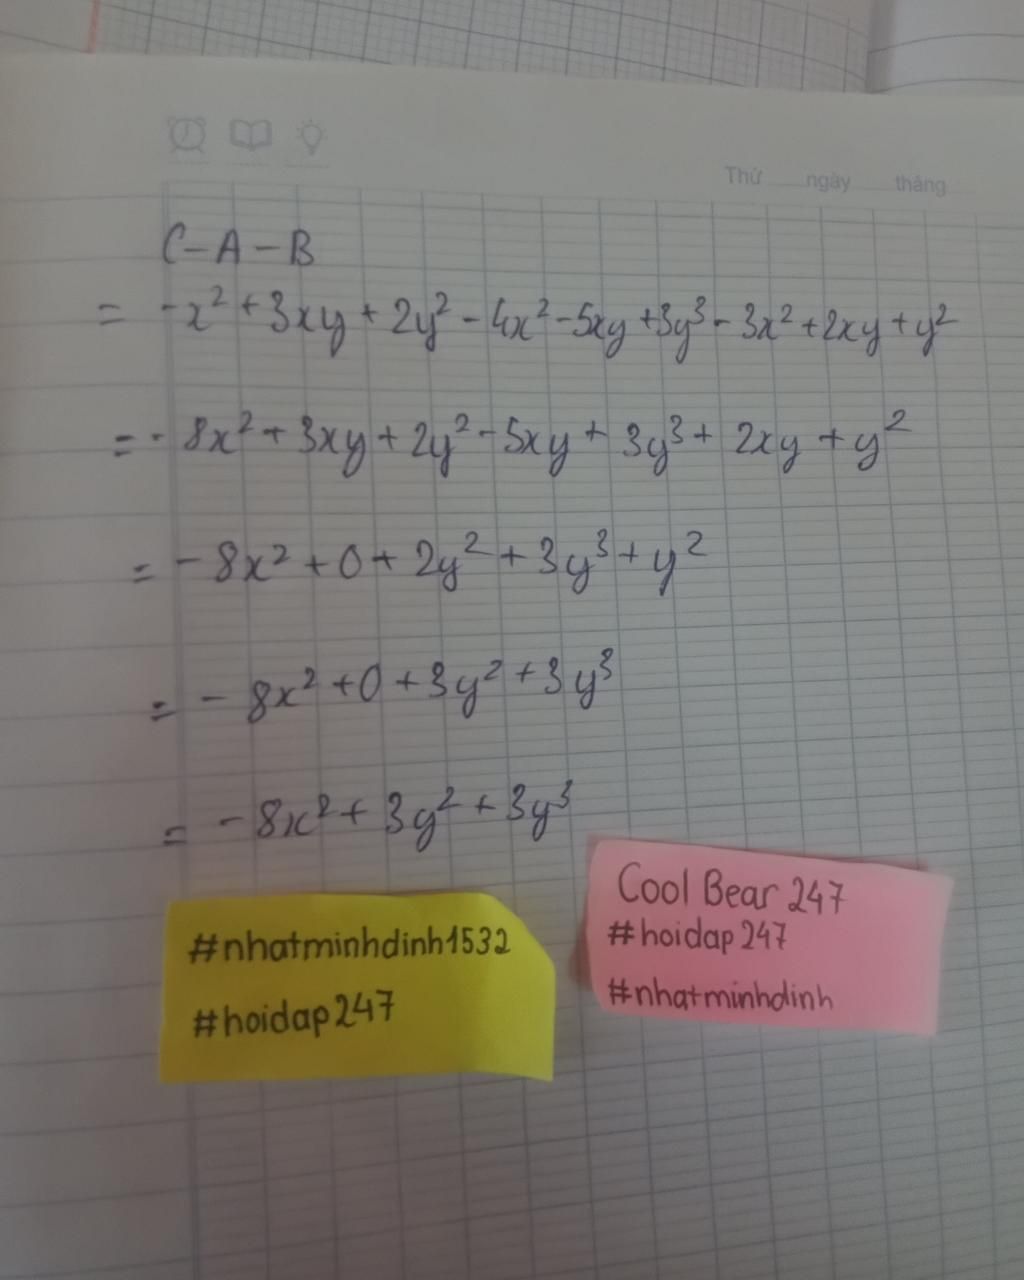 Thứ ngày tháng
C-A-B
= -x² + 3xy + 2y² - 4x² - 5xy + 3y³ - 3x² + 2xy + y²
= - 8x² + 3xy + 2y² - 5xy + 3y³ + 2xy + y²
= - 8x² + 0 + 2y² + 3y³ + y²
= - 8x² + 0 + 3y² + 3y³
= - 8x² + 3y² + 3y³
Cool Bear 247
#hoidap247
#nhatminhdinh
#nhatminhdinh1532
#hoidap247